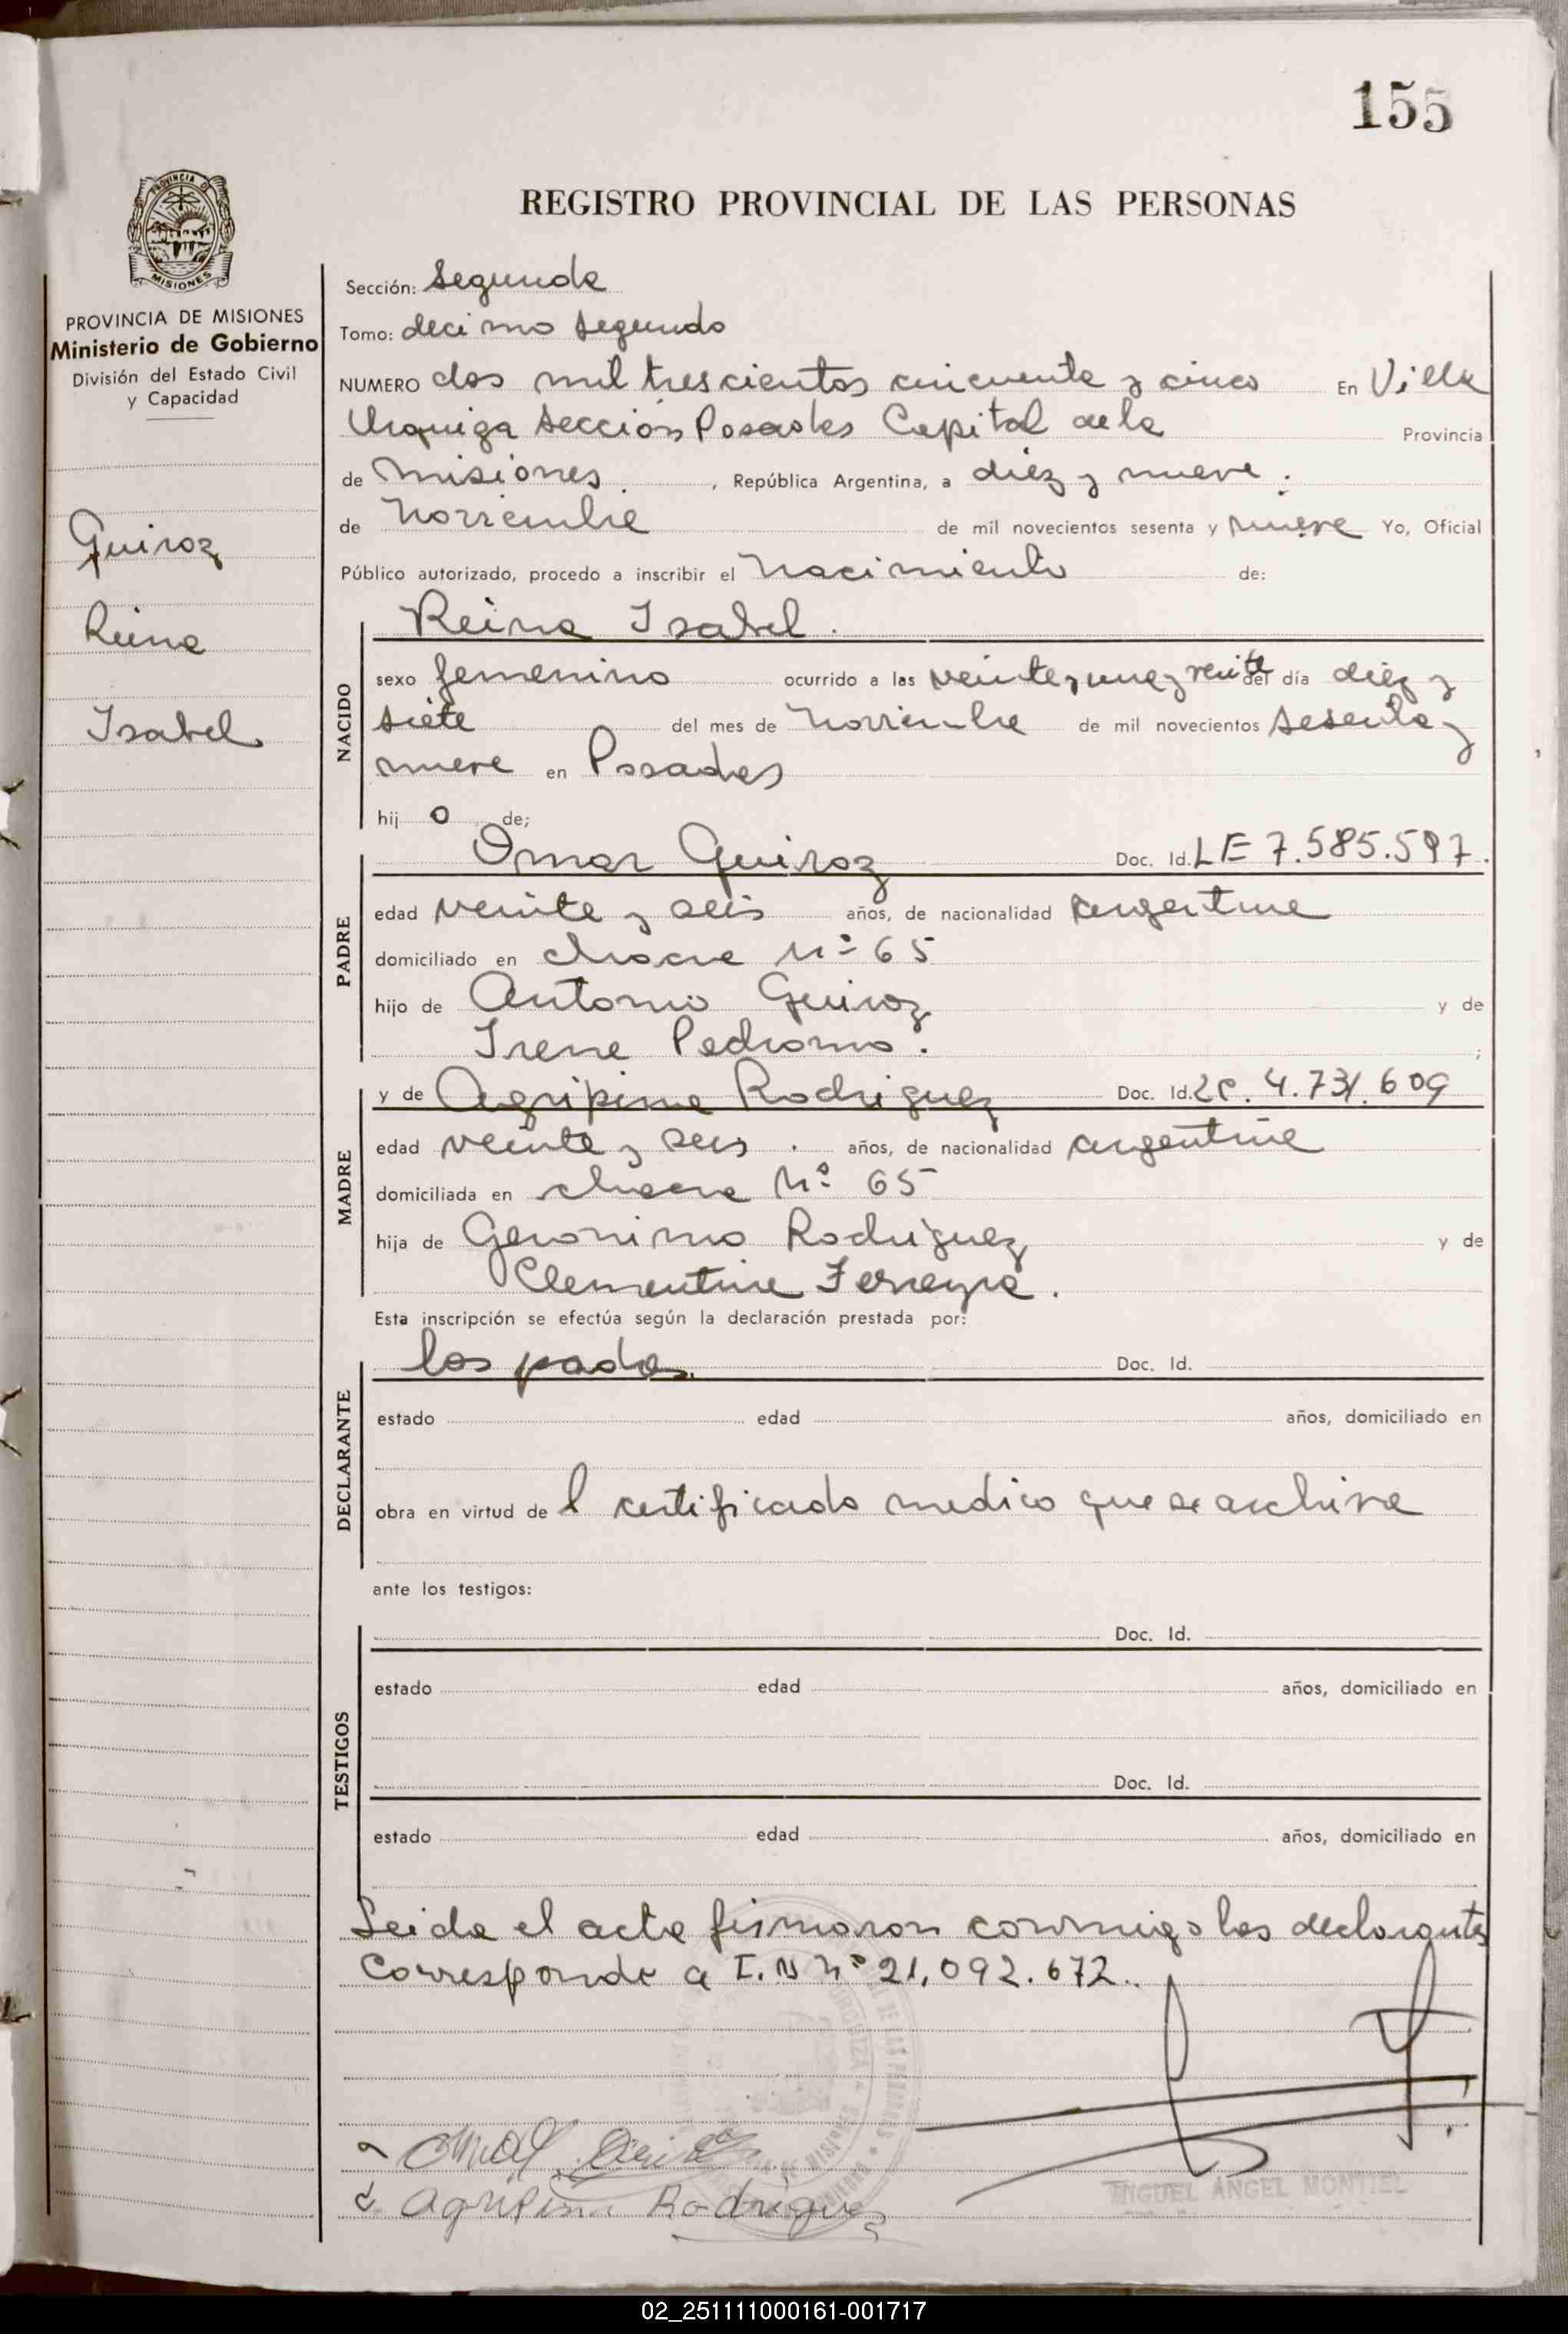 155
REGISTRO PROVINCIAL DE LAS PERSONAS
PROVINCIA DE MISIONES
Ministerio de Gobierno
División del Estado Civil
y Capacidad
Quiroz
Reina
Isabel
Sección: Segunda
Tomo: decimo segundo
NUMERO dos mil trescientos cincuenta y cinco En Villa
Urquiza Sección Posadas Capital de la Provincia
de Misiones , República Argentina, a diez y nueve
de Noviembre de mil novecientos sesenta y nueve Yo, Oficial
Público autorizado, procedo a inscribir el Nacimiento de:
Reina Isabel.
NACIDO
sexo femenino ocurrido a las veinte y una y veinte del día diez y
siete del mes de Noviembre de mil novecientos sesenta y
nueve en Posadas
hij o de;
PADRE
Omar Quiroz Doc. Id. LE 7.585.597.
edad veinte y seis años, de nacionalidad argentina
domiciliado en chacra Nº 65
hijo de Antonio Quiroz y de
Irene Pedromo. ;
MADRE
y de Agripina Rodriguez Doc. Id. LC. 4.731.609
edad veinte y seis . años, de nacionalidad argentina
domiciliada en chacra Nº 65
hija de Geronimo Rodriguez y de
Clementina Ferreyra.
Esta inscripción se efectúa según la declaración prestada por:
DECLARANTE
los padres Doc. Id.
estado edad años, domiciliado en
obra en virtud de l certificado medico que se archiva
ante los testigos:
TESTIGOS
Doc. Id.
estado edad años, domiciliado en
Doc. Id.
estado edad años, domiciliado en
Leida el acta firmaron conmigo los declarantes
Corresponde a I.N Nº 21.092.672.
Omar Quiroz
Agripina Rodriguez
MIGUEL ANGEL MONTIEL
02_251111000161-001717